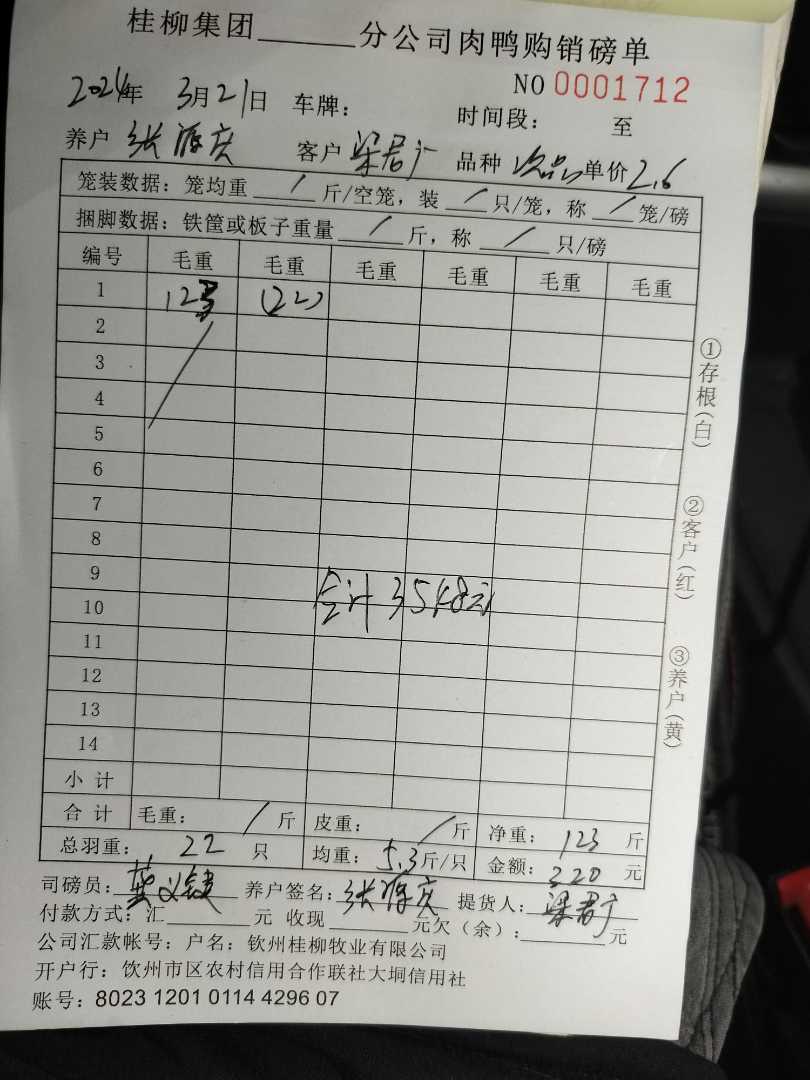 桂柳集团______分公司肉鸭购销磅单
NO 0001712
2024年 3月21日 车牌: 时间段: 至
养户 张海庆 客户 梁君广 品种 次品 单价 2.6
笼装数据:笼均重 / 斤/空笼,装 / 只/笼,称 / 笼/磅
捆脚数据:铁筐或板子重量 / 斤,称 / 只/磅
编号 毛重 毛重 毛重 毛重 毛重 毛重
1 123 (22)
2
3
4
5
6
7
8
9
合计 3548元
10
11
12
13
14
小计
合计 毛重: / 斤 皮重: / 斤 净重: 123 斤
总羽重: 22 只 均重: 5.3 斤/只 金额: 320 元
司磅员: 养户签名: 张海庆 提货人: 梁君广
付款方式:汇______元 收现______元欠(余):______元
公司汇款帐号:户名:钦州桂柳牧业有限公司
开户行:饮州市区农村信用合作联社大垌信用社
账号:8023 1201 0114 4296 07
①存根(白)
②客户(红)
③养户(黄)